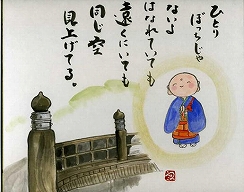 ひとり
ぼっちじゃ
ないよ
はなれていても
遠くにいても
同じ空
見上げてる。